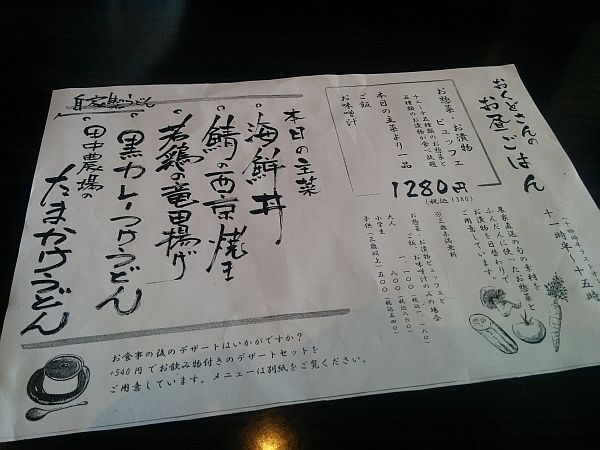 おくどさんの
お昼ごはん
十一時半～十五時
（十四時半ラストオーダー）
農家直送の旬の素材を
ふんだんに使ったお惣菜と
お漬物を日替わりで
ご用意しています。
お惣菜・お漬物
ビュッフェ
十二～十五種類のお惣菜と
五種類のお漬物が食べ放題
本日の主菜より一品
ご飯
お味噌汁
1280円
（税込1380）
※三歳未満無料
お惣菜・お漬物ビュッフェと
ご飯、お味噌汁のみの場合
大人 一、一〇〇
小学生 八〇〇
子供（三歳以上）五〇〇（税込五四〇）
本日の主菜
海鮮丼
鯖の西京焼き
若鶏の竜田揚げ
自家製うどん
黒カレーつけうどん
田中農場の
たまかけうどん
お食事の後のデザートはいかがですか？
+540円でお飲み物付きのデザートセットを
ご用意しています。メニューは別紙をご覧ください。